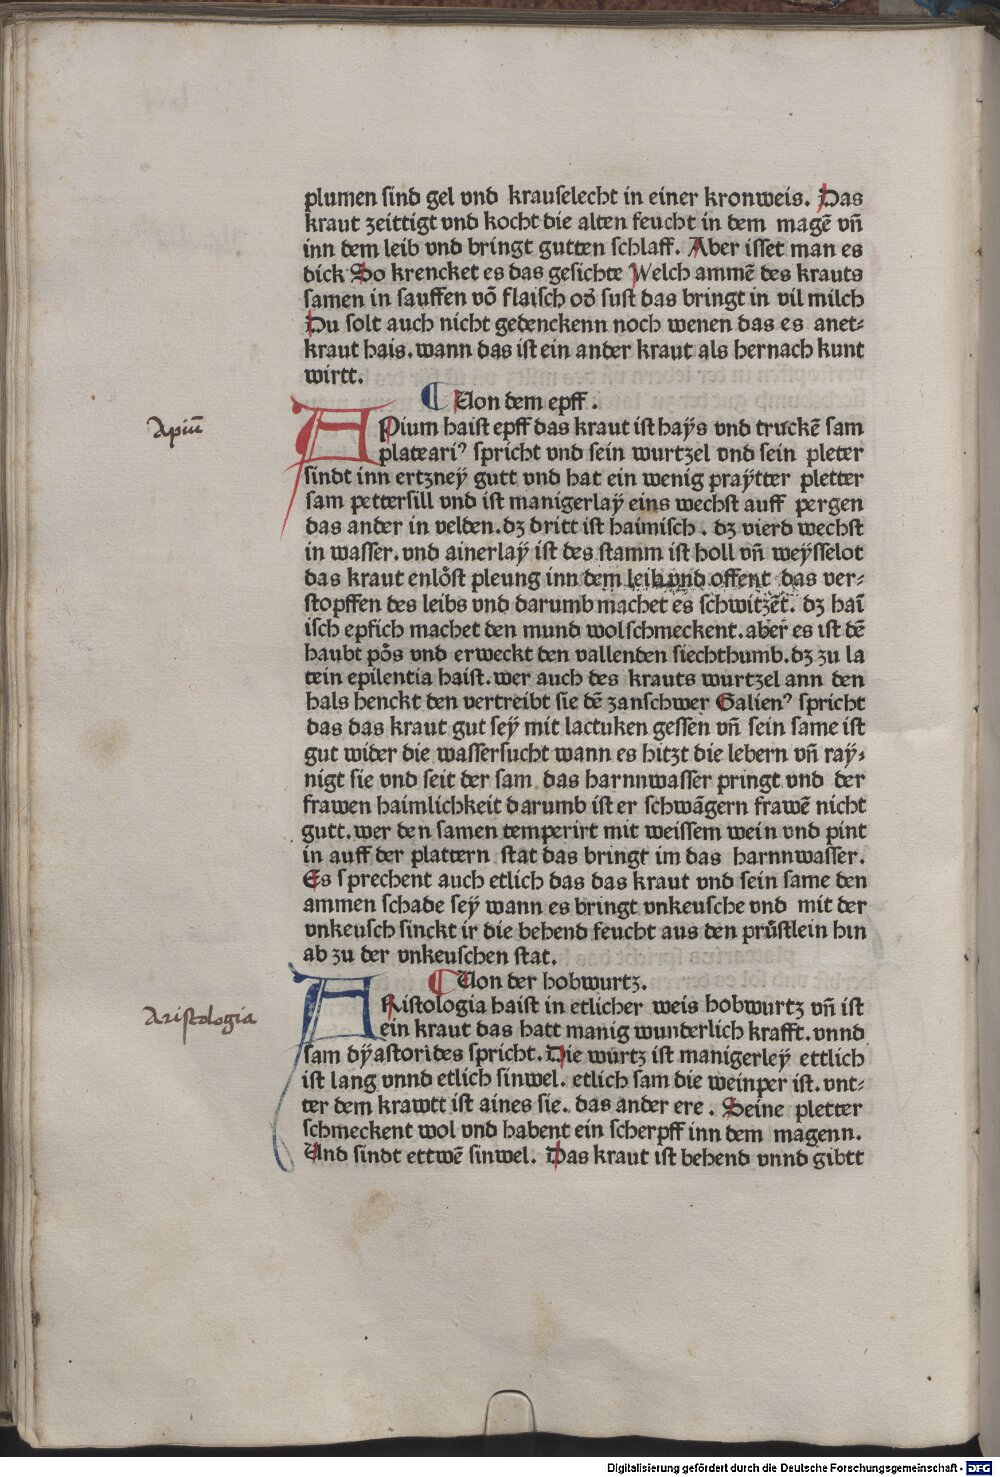 plumen sind gel vnd krauselecht in einer kronweis. Das
kraut zeittigt vnd kocht die alten feucht in dem magē vn̄
inn dem leib vnd bringt gutten schlaff. Aber isset man es
dick So krencket es das gesichte Welch ammē des krauts
samen in sauffen vō flaisch od̄ sust das bringt in vil milch
Du solt auch nicht gedenckenn noch wenen das es anet⸗
kraut hais. wann das ist ein ander kraut als hernach kunt
wirtt.
Von dem epff.
Apiū
APium haist epff das kraut ist haÿs vnd truckē sam
plateariꝰ spricht vnd sein wurtzel vnd sein pleter
sindt inn ertzneÿ gutt vnd hat ein wenig praÿtter pletter
sam pettersill vnd ist manigerlaÿ eins wechst auff pergen
das ander in velden. dꝫ dritt ist haimisch. dꝫ vierd wechst
in wasser. vnd ainerlaÿ ist des stamm ist holl vn̄ weÿsselot
das kraut enlöst pleung inn dem leib vnd offent das ver⸗
stopffen des leibs vnd darumb machet es schwitzēt. dꝫ haī
isch epfich machet den mund wolschmeckent. aber es ist dē
haubt pös vnd erweckt den vallenden siechthumb. dꝫ zu la
tein epilentia haist. wer auch des krauts wurtzel ann den
hals henckt den vertreibt sie dē zanschwer Galienꝰ spricht
das das kraut gut seÿ mit lactuken gessen vn̄ sein same ist
gut wider die wassersucht wann es hitzt die lebern vn̄ raÿ⸗
nigt sie vnd seit der sam das harnnwasser pringt vnd der
frawen haimlichkeit darumb ist er schwāgern frawē nicht
gutt. wer den samen temperirt mit weissem wein vnd pint
in auff der plattern stat das bringt im das harnnwasser.
Es sprechent auch etlich das das kraut vnd sein same den
ammen schade seÿ wann es bringt vnkeusche vnd mit der
vnkeusch sinckt ir die behend feucht aus den prüstlein hin
ab zu der vnkeuschen stat.
Von der hobwurtz.
Aristologia
ARistologia haist in etlicher weis hobwurtz vn̄ ist
ein kraut das hatt manig wunderlich krafft. vnnd
sam dÿastorides spricht. Die wurtz ist manigerleÿ ettlich
ist lang vnnd etlich sinwel. etlich sam die weinper ist. vnt⸗
ter dem krawtt ist aines sie. das ander ere. Seine pletter
schmeckent wol vnd habent ein scherpff inn dem magenn.
Vnd sindt ettwē sinwel. Das kraut ist behend vnnd gibtt
Digitalisierung gefördert durch die Deutsche Forschungsgemeinschaft - DFG